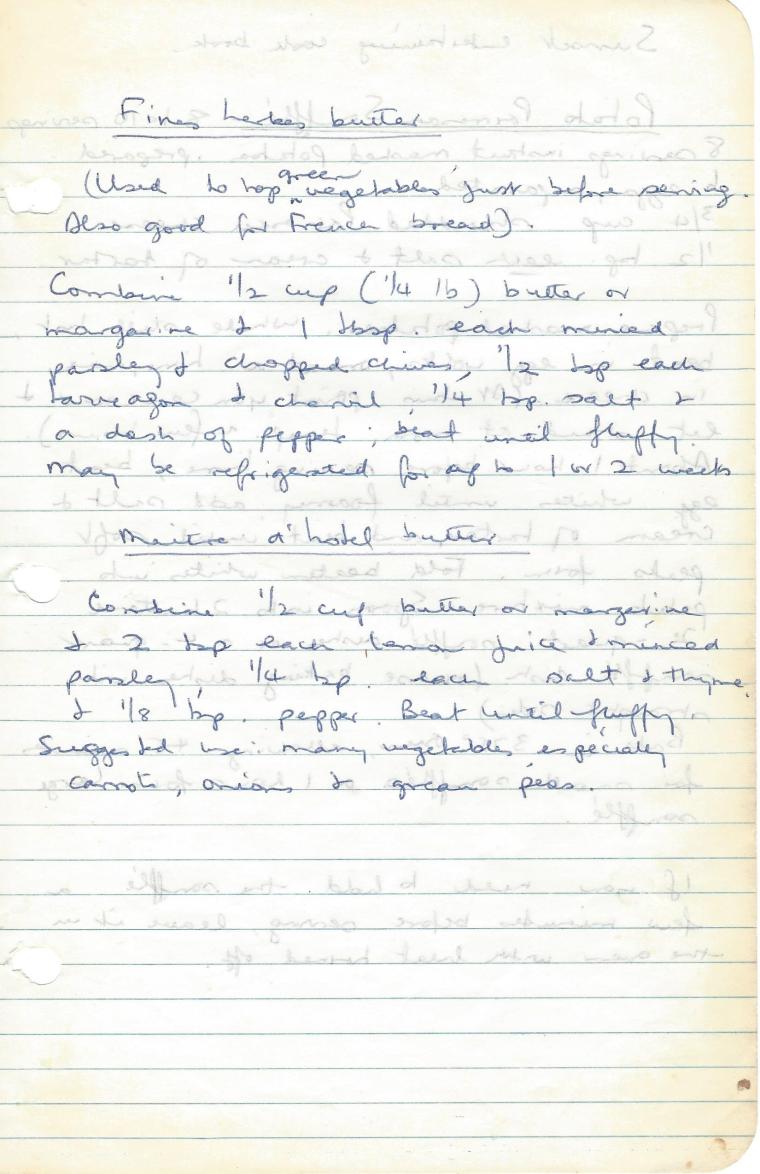 Fines herbes butter
(Used to top green vegetables just before serving.
Also good for French bread).
Combine 1/2 cup (1/4 lb) butter or
margarine & 1 tbsp. each minced
parsley & chopped chives, 1/2 tsp each
tarragon & chervil, 1/4 tsp. salt &
a dash of pepper; beat until fluffy.
May be refrigerated for up to 1 or 2 weeks
Maitre d'hotel butter
Combine 1/2 cup butter or margarine
& 2 tsp each lemon juice & minced
parsley, 1/4 tsp. each salt & thyme,
& 1/8 tsp. pepper. Beat until fluffy
Suggested use: many vegetables especially
carrots, onions & green peas.